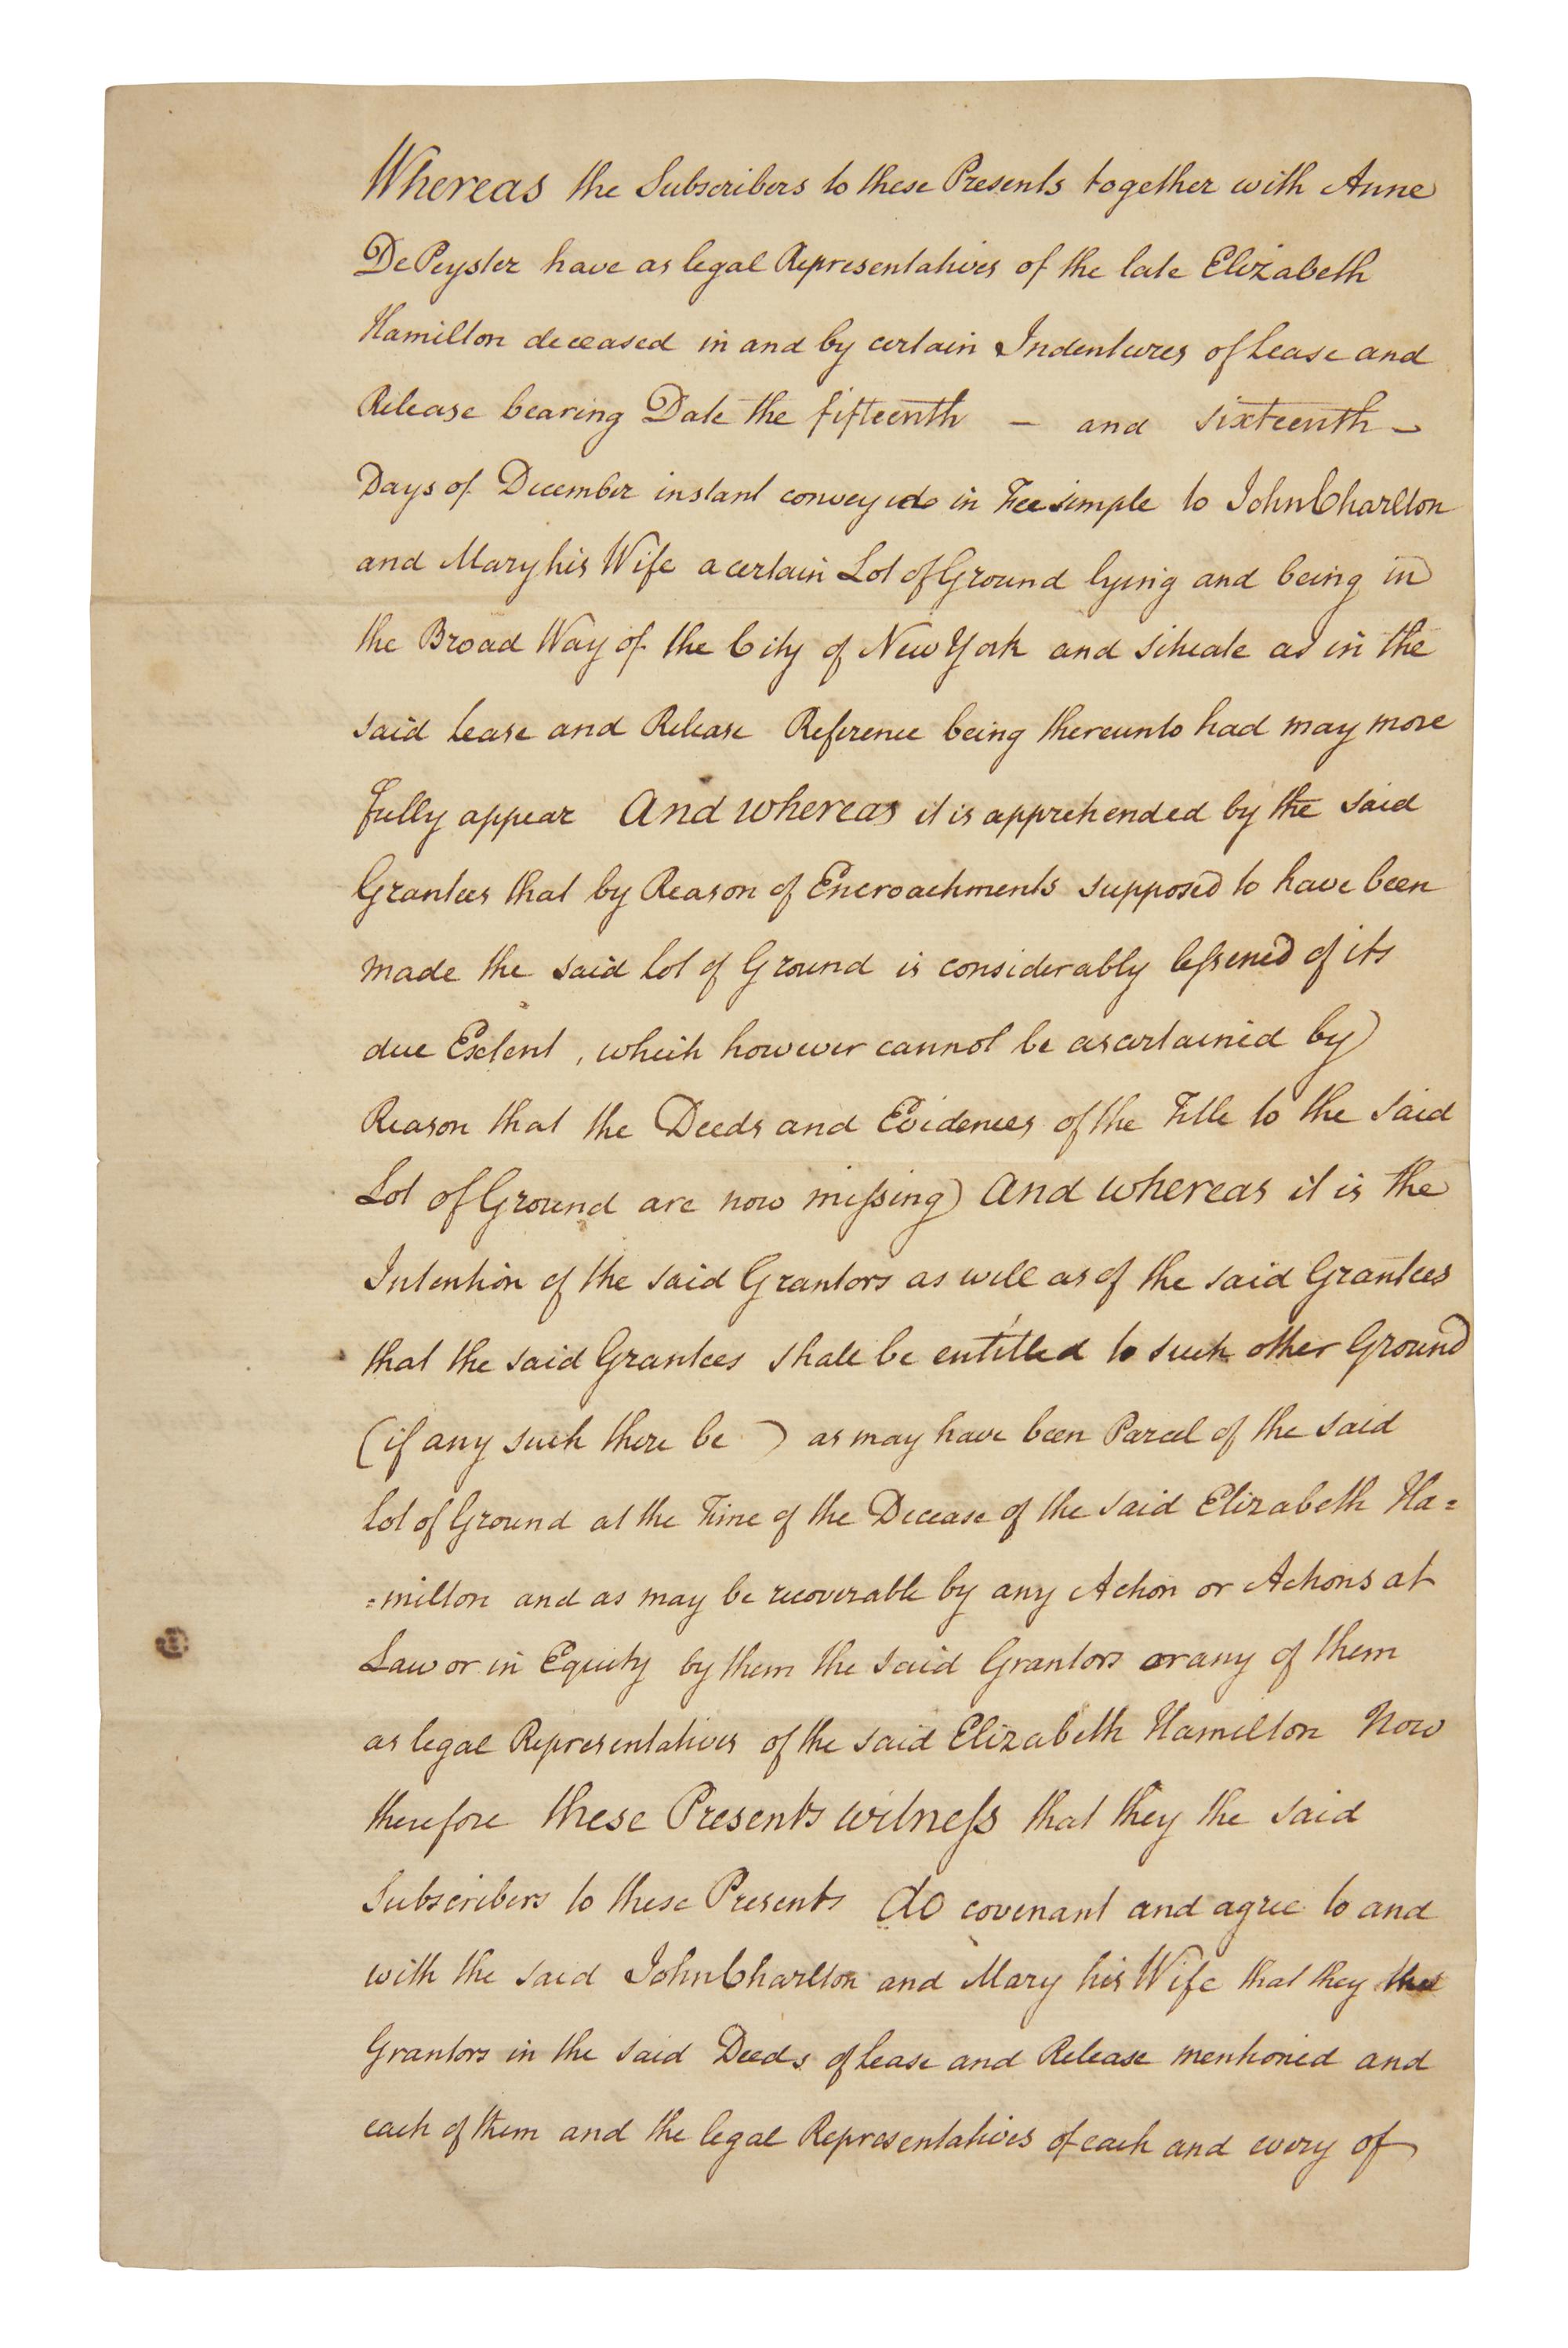 Whereas the Subscribers to these Presents together with Anne
DePeyster have as legal Representatives of the late Elizabeth
Hamilton deceased in and by certain Indentures of Lease and
Release bearing Date the fifteenth – and sixteenth –
Days of December instant conveyed in Fee simple to John Charlton
and Mary his Wife a certain Lot of Ground lying and being in
the Broad Way of the City of New York and situate as in the
said Lease and Release Reference being thereunto had may more
fully appear And whereas it is apprehended by the said
Grantees that by Reason of Encroachments supposed to have been
made the said Lot of Ground is considerably leſsened of its
due Extent, which however cannot be ascertained by
Reason that the Deeds and Evidences of the Title to the said
Lot of Ground are now miſsing) And whereas it is the
Intention of the said Grantors as well as of the said Grantees
that the said Grantees shall be entitled to such other Ground
(if any such there be ) as may have been Parcel of the said
Lot of Ground at the Time of the Decease of the said Elizabeth Ha=
=milton and as may be recoverable by any Action or Actions at
Law or in Equity by them the said Grantors or any of them
as legal Representatives of the said Elizabeth Hamilton Now
therefore these Presents witneſs that they the said
Subscribers to these Presents do covenant and agree to and
with the said John Charlton and Mary his Wife that they the
Grantors in the said Deeds of Lease and Release mentioned and
each of them and the legal Representatives of each and every of